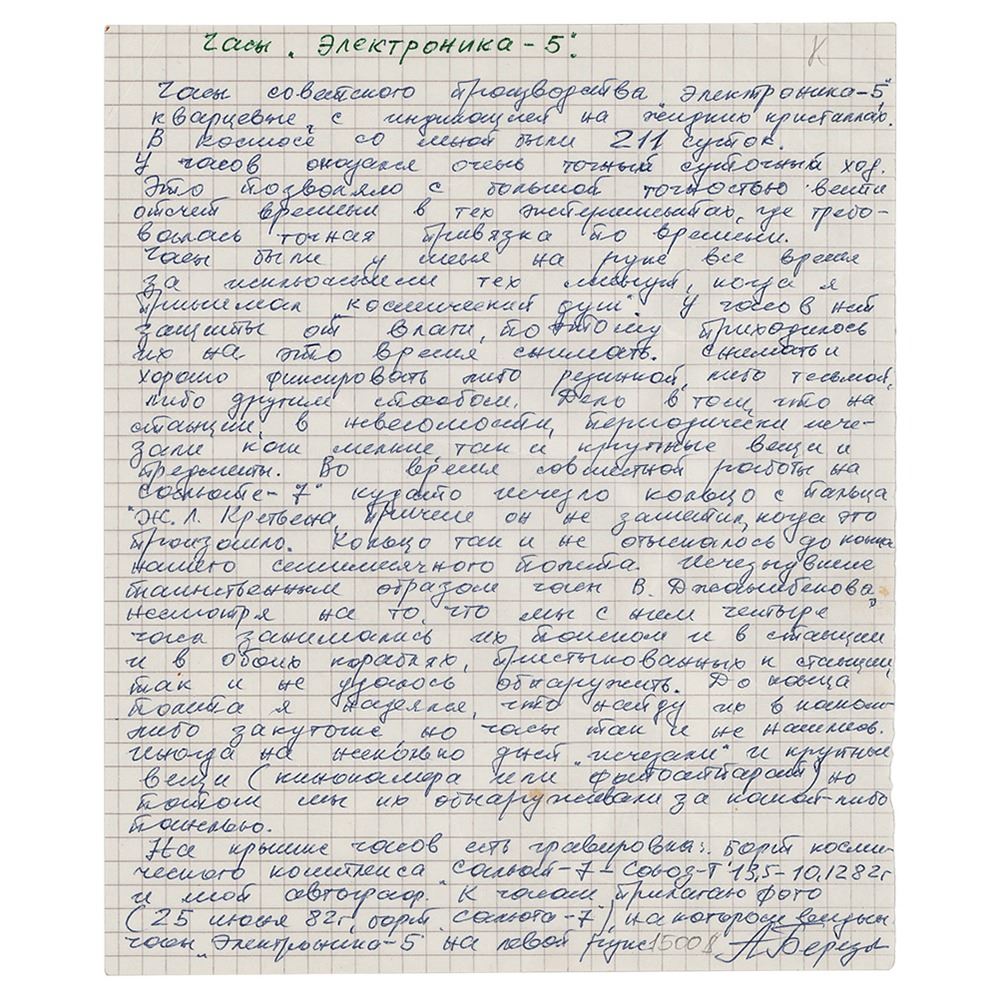 Часы „Электроника-5".
К
Часы советского производства „Электроника-5",
кварцевые, с индикацией на жидких кристаллах.
В космосе со мной были 211 суток.
У часов оказался очень точный суточный ход.
Это позволяло с большой точностью вести
отсчет времени в тех экспериментах, где требо-
валась точная привязка по времени.
Часы были у меня на руке все время
за исключением тех минут, когда я
принимал „космический душ". У часов нет
защиты от влаги, поэтому приходилось
их на это время снимать. Снимать и
хорошо фиксировать либо резинкой, либо тесьмой,
либо другим способом. Дело в том, что на
станции, в невесомости, периодически исче-
зали как мелкие, так и крупные вещи и
предметы. Во время совместной работы на
„Салюте-7" куда-то исчезло кольцо с пальца
Ж. Л. Кретьена, причем он не заметил, когда это
произошло. Кольцо так и не отыскалось до конца
нашего семимесячного полета. Исчезнувшие
таинственным образом часы В. Джанибекова,
несмотря на то, что мы с ним четыре
часа занимались их поиском и в станции
и в обоих кораблях, пристыкованных к станции,
так и не удалось обнаружить. До конца
полета я надеялся, что найду их в каком-
либо закуточке, но часы так и не нашлись.
Иногда на несколько дней „исчезали" и крупные
вещи (кинокамера или фотоаппарат), но
потом мы их обнаруживали за какой-либо
панелью.
На крышке часов есть гравировка: Борт косми-
ческого комплекса Салют-7 - Союз-Т 13,5-10,12 82г
и мой автограф. К часам прилагаю фото
(25 июня 82г, борт „Салюта-7"), на котором видны
часы „Электроника-5" на левой руке 1500$ А. Березо